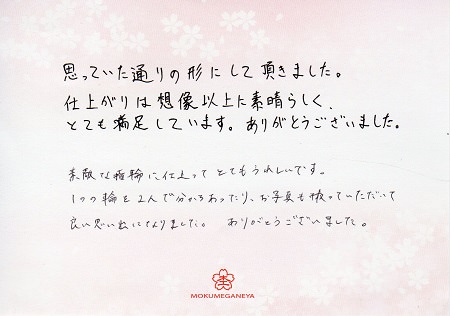 思っていた通りの形にして頂きました。
仕上がりは想像以上に素晴らしく、
とても満足しています。ありがとうございました。
素敵な指輪に仕上って とてもうれしいです。
1つの輪を2人で分かちあったり、お写真も撮っていただいて
良い思い出になりました。 ありがとうございました。
杢
MOKUMEGANEYA